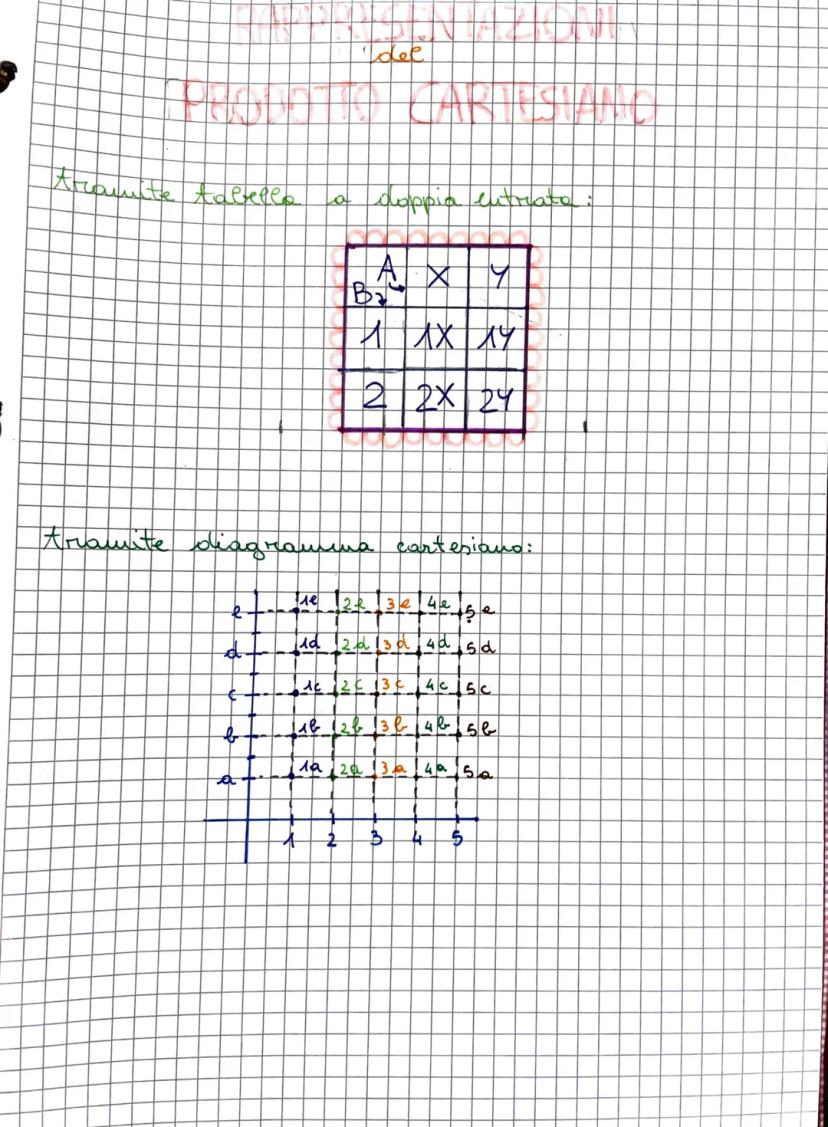 RAPPRESENTAZIONI
del
PRODOTTO CARTESIANO
tramite tabella a doppia entrata:
A X Y
B
1 1X 1Y
2 2X 2Y
tramite diagramma cartesiano:
e 1e 2e 3e 4e 5e
d 1d 2d 3d 4d 5d
c 1c 2c 3c 4c 5c
b 1b 2b 3b 4b 5b
a 1a 2a 3a 4a 5a
1 2 3 4 5